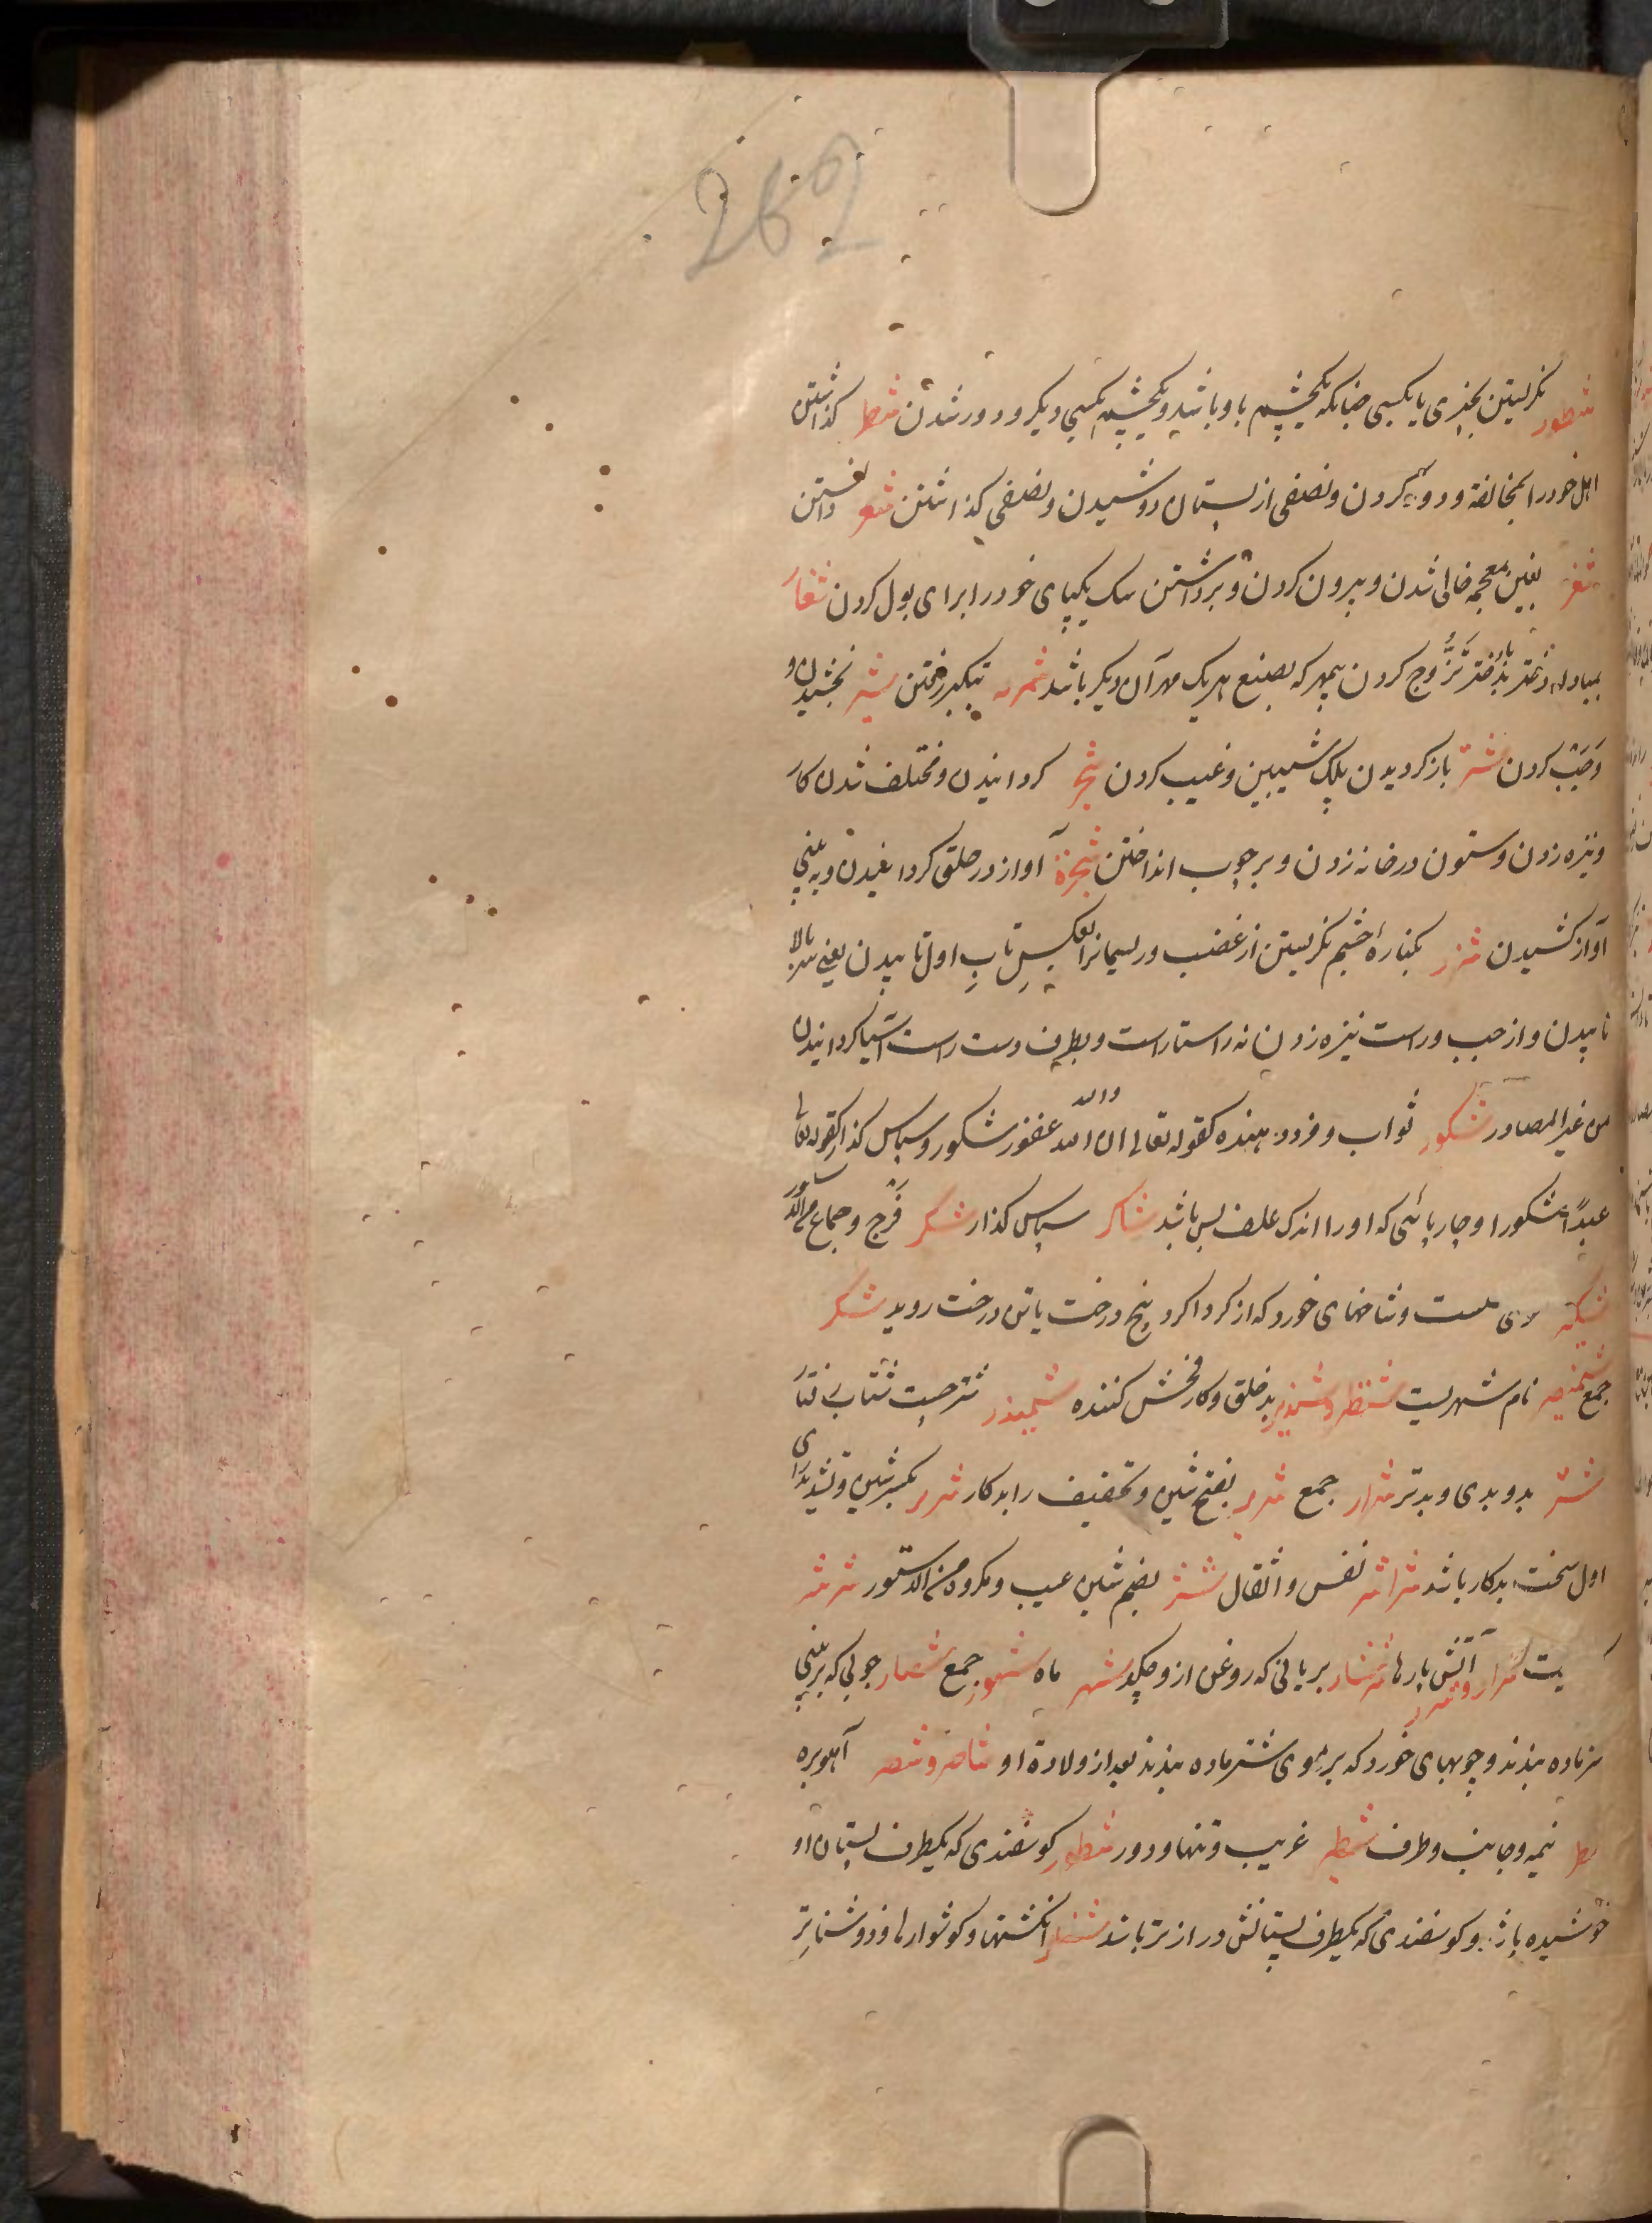 262
شطور نگریستن بچیزی یا بکسی چنانکه یکچشم باو باشد و یکچشم بکسی دیگر و دور شدن شطر گذاشتن
اهل خود را بمخالفة و دو نیم کردن و نصفی از پستان دوشیدن و نصفی گذاشتن شعر دانستن
شغر بغین معجمه خالی شدن و بیرون کردن و برداشتن سک یکپای خود را برای بول کردن شغار
بمبادله دختر بدختر تزوج کردن بیمهر که بضع هریک مهر آن دیگر باشد بتکبر رفتن شبر بخشیدن و
وجب کردن شتر باز گردیدن پلک شیبین و عیب کردن شجر گردانیدن و مختلف شدن کار
و نیزه زدن و ستون در خانه زدن و بر چوب انداختن آواز در حلق گردانیدن و به بینی
آواز کشیدن شزر بکنارهٔ چشم نگریستن از غضب و ریسمانرا بعکس تاب اول تابیدن یعنی بالا
تابیدن و از چپ و راست نیزه زدن نه راستاراست و بطرف دست راست آسیا گردانیدن
من غیر المصادر شکور ثواب و مزد دهنده کقوله تعالی ان الله غفور شکور و سپاس گذار کقوله تعالی
عبدًا شکورا و چارپائی که او را اندک علف بس باشد شاکر سپاس گذار شکر فرج و جماع
شکیر موی سست و شاخهای خورد که از گرداگرد بیخ درخت یا تن درخت روید شکر
جمع نام شهریست شنظیر بدخلق و کار فحش کننده شتر چست شتاب رفتار
شر بد و بدی و بدتر شرار جمع شریر بفتح شین و تخفیف را بدکار شریر بکسر شین و تشدید رای
اول سخت بدکار باشد شراشر نفس و اثقال شر بضم شین عیب و مکروه من الدستور شرشر
شرار و شرر آتش پارها شرشار بریانی که روغن ازو چکد شهر ماه شهور جمع شصار چوبی که بر بینی
نر ماده بندند و چوبهای خورد که بر موی شتر ماده بندند بعد از ولادة او شاصر و شصر آهو بره
شطر نیمه و جانب و طرف شطیر غریب و تنها و دور شطور گوسفندی که یکطرف پستان او
خوشیده باشد و گوسفندی که یکطرف پستانش درازتر باشد انگشتها و گوشوارها و